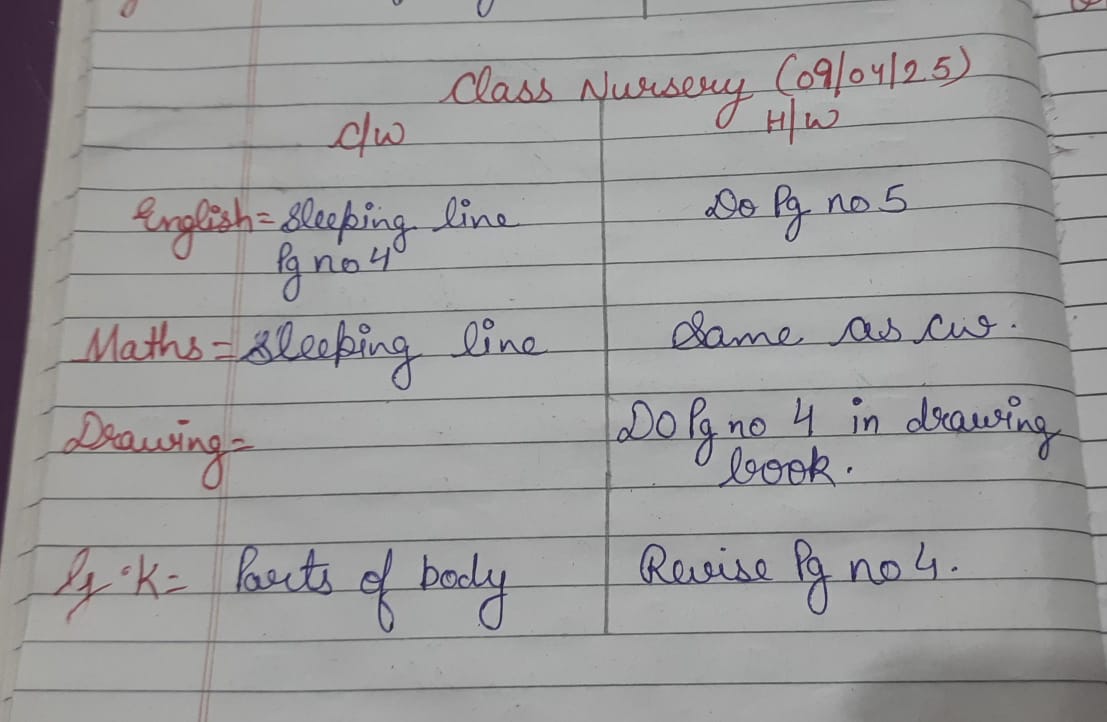 Class Nursery (09/04/25)
C/W H/W
English = Sleeping line Do Pg no 5
Pg no 4
Maths = Sleeping line Same as cw.
Drawing = Do Pg no 4 in drawing
book.
K = Parts of body Revise Pg no 4.